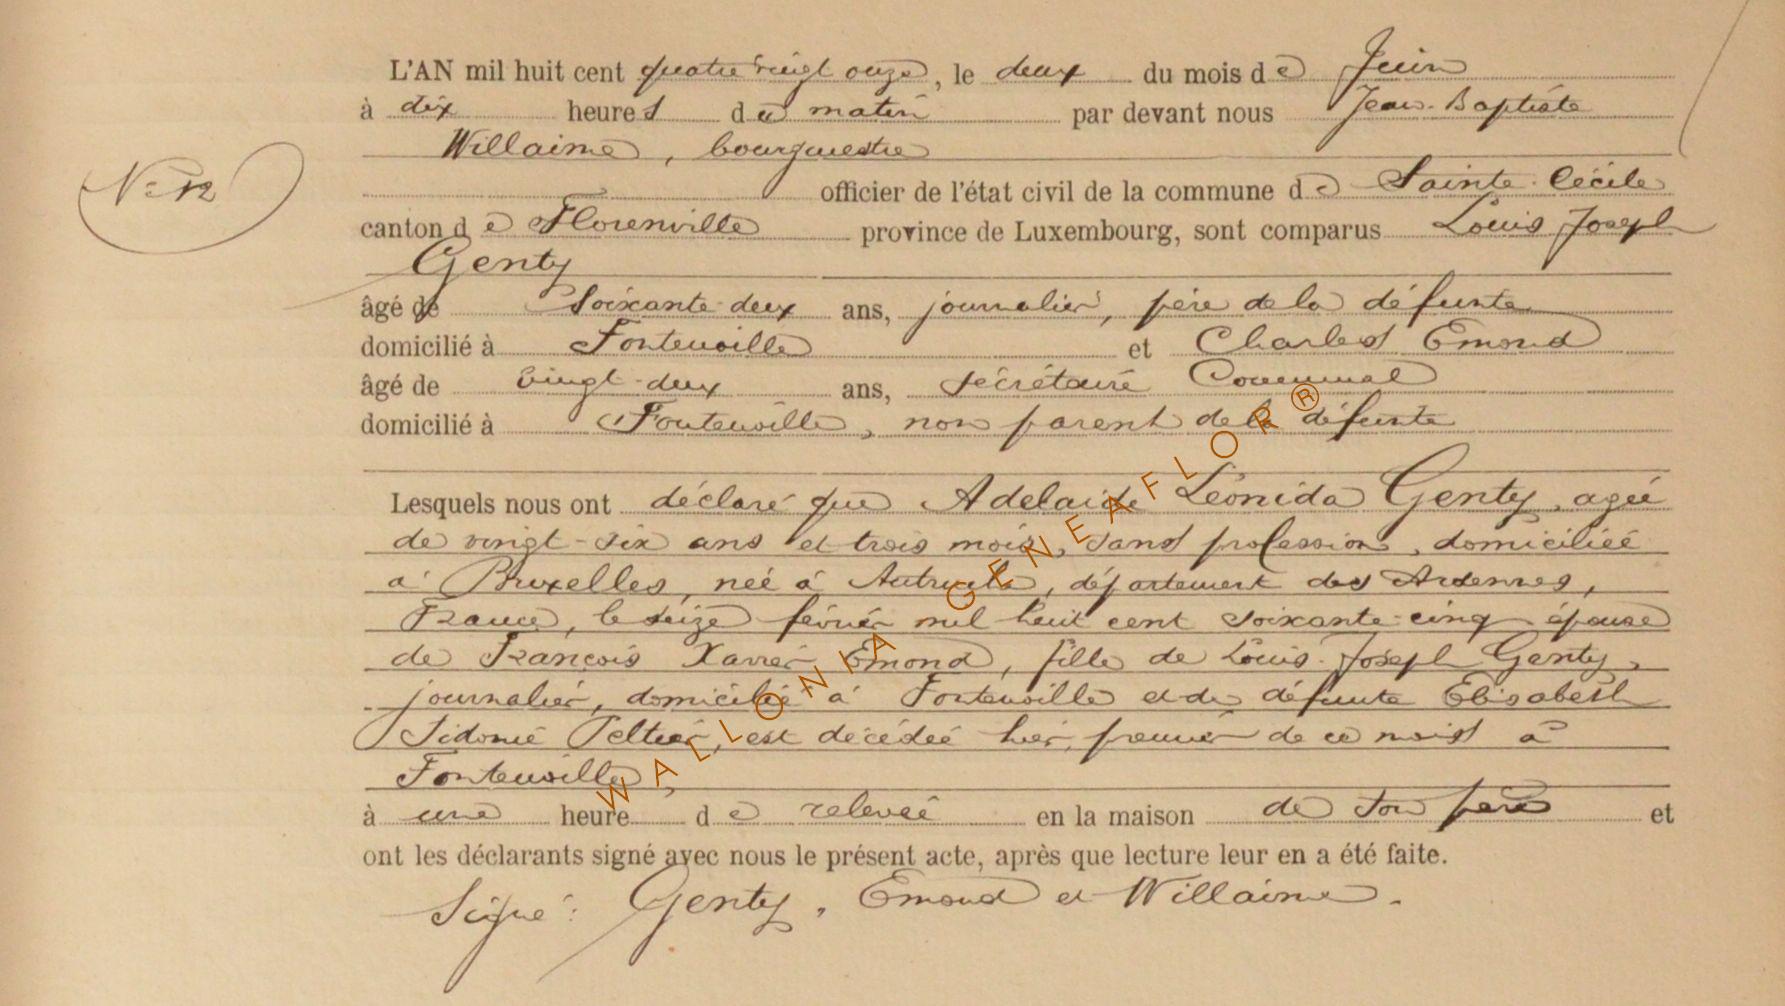 L'AN mil huit cent quatre vingt onze, le deux du mois de Juin
à dix heures du matin par devant nous Jean-Baptiste
Willaime, bourgmestre
N° 12
officier de l'état civil de la commune de Sainte-Cécile
canton de Florenville province de Luxembourg, sont comparus Louis Joseph
Genty
âgé de soixante-deux ans, journalier, père de la défunte
domicilié à Fontenoille et Charles Emond
âgé de vingt-deux ans, secrétaire Communal
domicilié à Fontenoille, non parent de la défunte
Lesquels nous ont déclaré que Adelaïde Léonida Genty, agée
de vingt-six ans et trois mois, sans profession, domiciliée
à Bruxelles, née à, département des Ardennes,
France, le seize février mil huit cent soixante-cinq épouse
de François Xavier Emond, fille de Louis-Joseph Genty,
journalier, domicilié à Fontenoille et de défunte Elisabeth
Sidonie Peltier, est décédée hier, premier de ce mois à
Fontenoille,
à une heure de relevée en la maison de son père et
ont les déclarants signé avec nous le présent acte, après que lecture leur en a été faite.
Signé: Genty, Emond et Willaime.
WALLONIA GENEAFLOR®